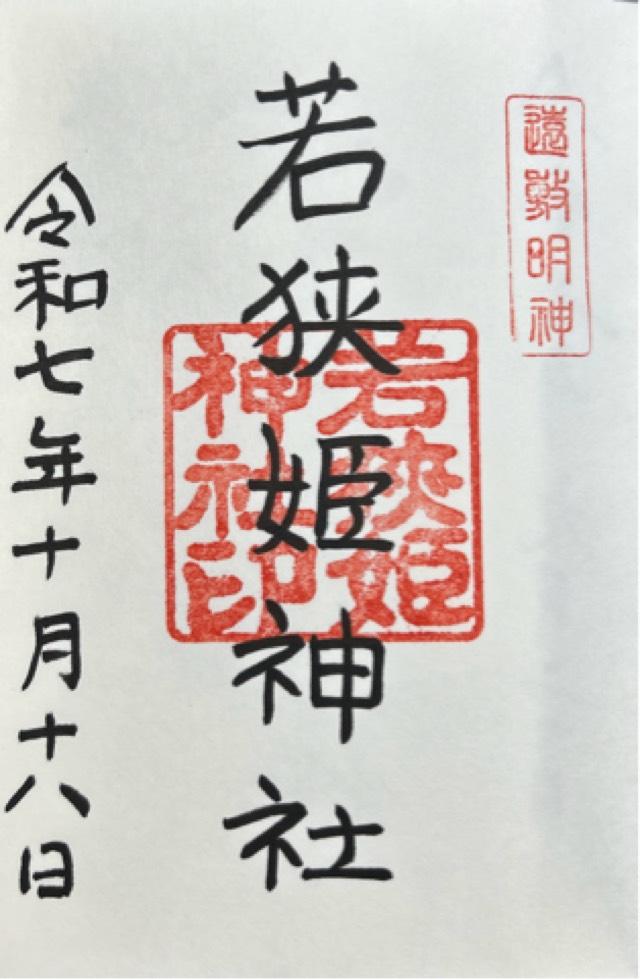 遠敷明神
若狭姫神社
若狭姫
神社印
令和七年十月十八日